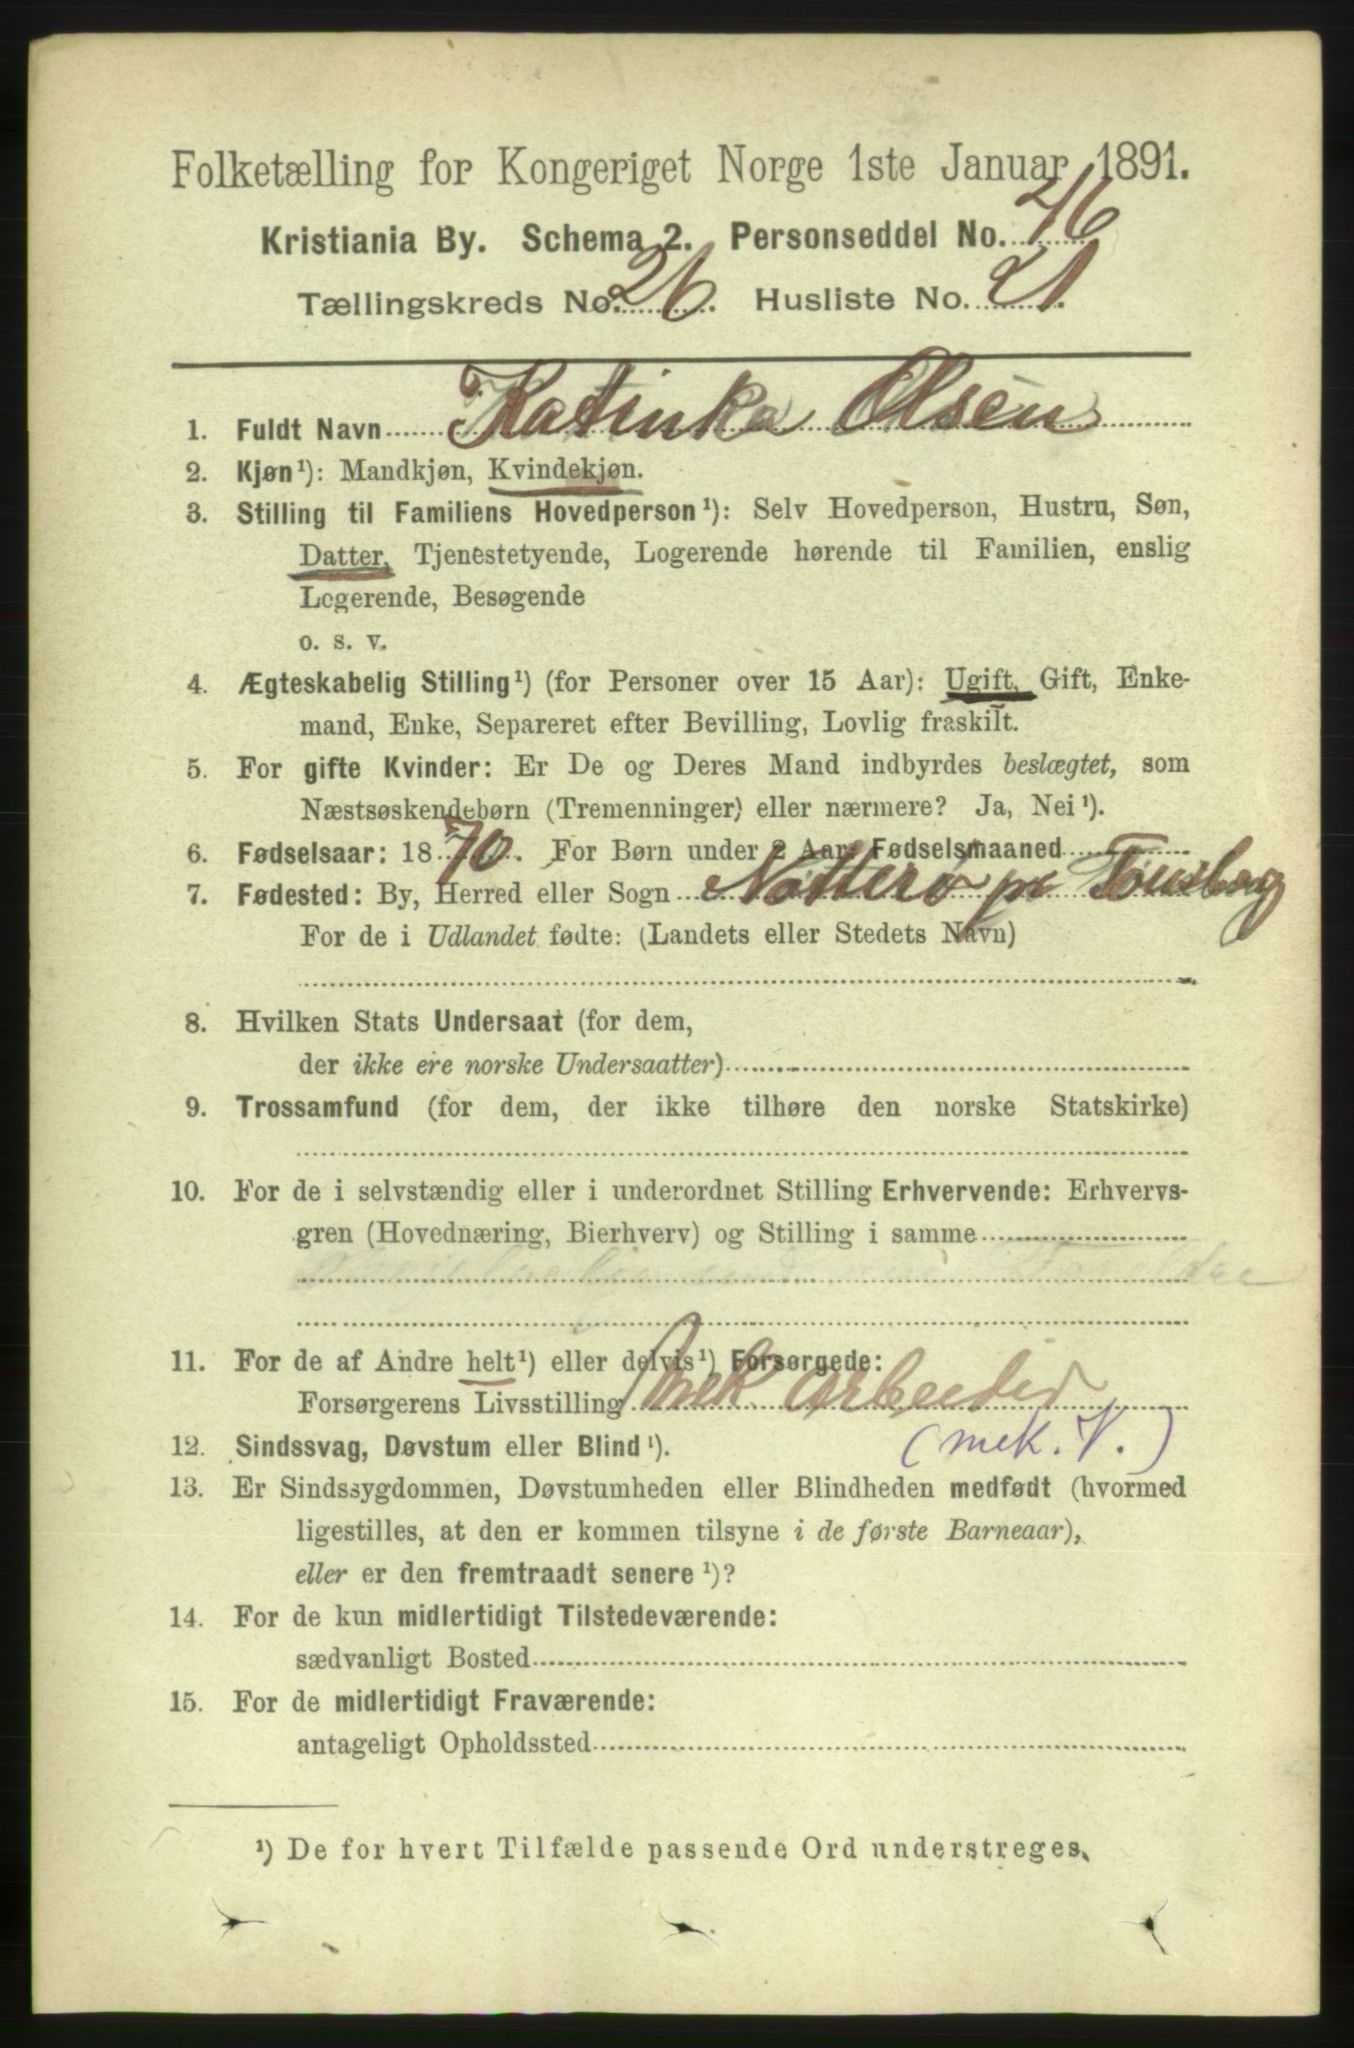 Folketælling for Kongeriget Norge 1ste Januar 1891.
Kristiania By. Schema 2. Personseddel No. 46
Tællingskreds No. 26. Husliste No. 21.
1. Fuldt Navn Katinka Olsen
2. Kjøn¹): Mandkjøn, Kvindekjøn.
3. Stilling til Familiens Hovedperson¹): Selv Hovedperson, Hustru, Søn,
Datter, Tjenestetyende, Logerende hørende til Familien, enslig
Logerende, Besøgende
o. s. v.
4. Ægteskabelig Stilling¹) (for Personer over 15 Aar): Ugift, Gift, Enke-
mand, Enke, Separeret efter Bevilling, Lovlig fraskilt.
5. For gifte Kvinder: Er De og Deres Mand indbyrdes beslægtet, som
Næstsøskendebørn (Tremenninger) eller nærmere? Ja, Nei¹).
6. Fødselsaar: 1870. For Børn under 2 Aar: Fødselsmaaned
7. Fødested: By, Herred eller Sogn Nøtterø pr Tønsberg
For de i Udlandet fødte: (Landets eller Stedets Navn)
8. Hvilken Stats Undersaat (for dem,
der ikke ere norske Undersaatter)
9. Trossamfund (for dem, der ikke tilhøre den norske Statskirke)
10. For de i selvstændig eller i underordnet Stilling Erhvervende: Erhvervs-
gren (Hovednæring, Bierhverv) og Stilling i samme
11. For de af Andre helt¹) eller delvis¹) Forsørgede:
Forsørgerens Livsstilling Mek arbeider
(mek. V.)
12. Sindssvag, Døvstum eller Blind¹).
13. Er Sindssygdommen, Døvstumheden eller Blindheden medfødt (hvormed
ligestilles, at den er kommen tilsyne i de første Barneaar),
eller er den fremtraadt senere¹)?
14. For de kun midlertidigt Tilstedeværende:
sædvanligt Bosted
15. For de midlertidigt Fraværende:
antageligt Opholdssted
¹) De for hvert Tilfælde passende Ord understreges.